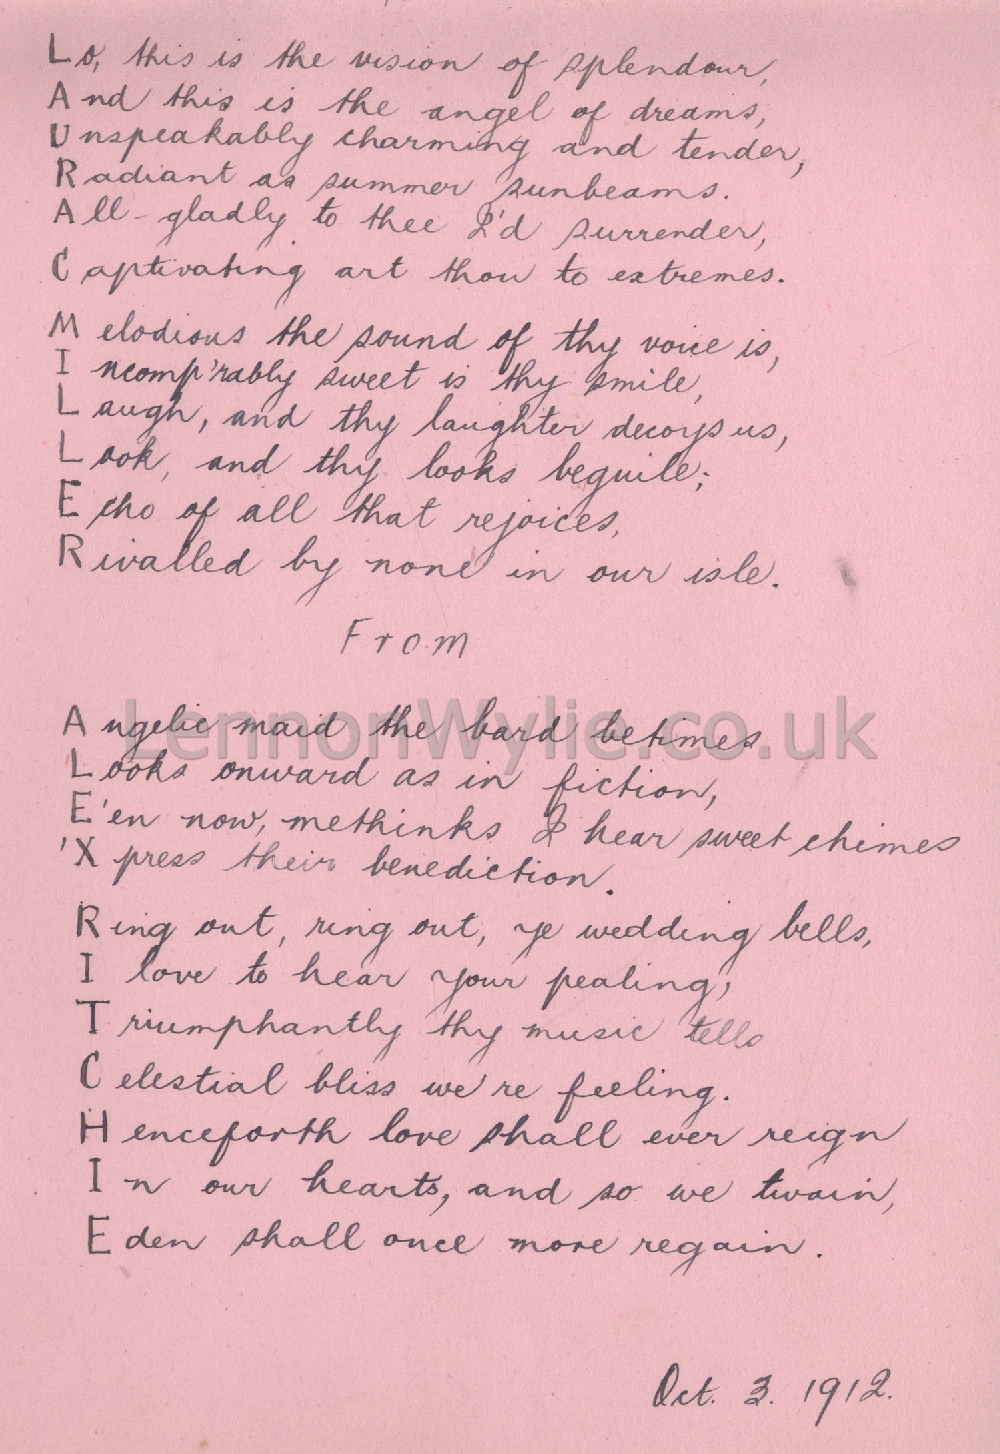 Lo, this is the vision of splendour,
And this is the angel of dreams,
Unspeakably charming and tender,
Radiant as summer sunbeams.
All-gladly to thee I'd surrender,
Captivating art thou to extremes.
Melodious the sound of thy voice is,
Incomp'rably sweet is thy smile,
Laugh, and thy laughter decoys us,
Look, and thy looks beguile;
Echo of all that rejoices,
Rivalled by none in our isle.
From
LennonWylie.co.uk
Angelic maid the bard betimes
Looks onward as in fiction,
E'en now, methinks I hear sweet chimes
'Xpress their benediction.
Ring out, ring out, ye wedding bells,
I love to hear your pealing,
Triumphantly thy music tells
Celestial bliss we're feeling.
Henceforth love shall ever reign
In our hearts, and so we twain,
Eden shall once more regain.
Oct. 3. 1912.